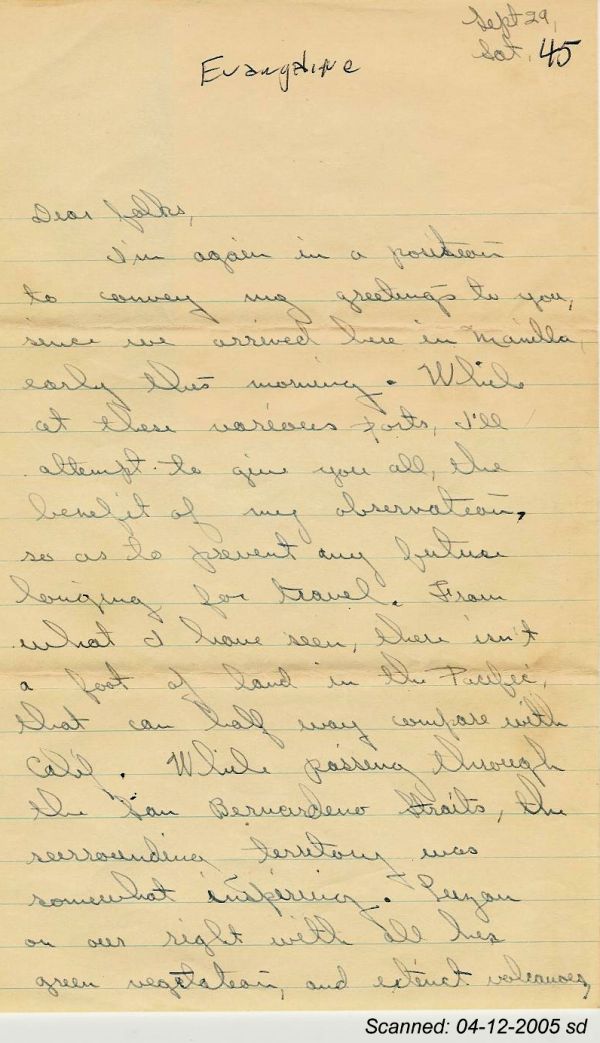 Sept 29,
Sat. 45
Evangeline
Dear folks,
I'm again in a position
to convey my greetings to you,
since we arrived here in Manilla,
early this morning. While
at these various ports, I'll
attempt to give you all, the
benefit of my observation,
so as to prevent any future
longing for travel. From
what I have seen, there isn't
a foot of land in the Pacific,
that can half way compare with
Calif. While passing through
the San Bernardeno Straits, the
surrounding territory was
somewhat inspiring. Luzon
on our right with all her
green vegetation, and extinct volcanoes,
Scanned: 04-12-2005 sd